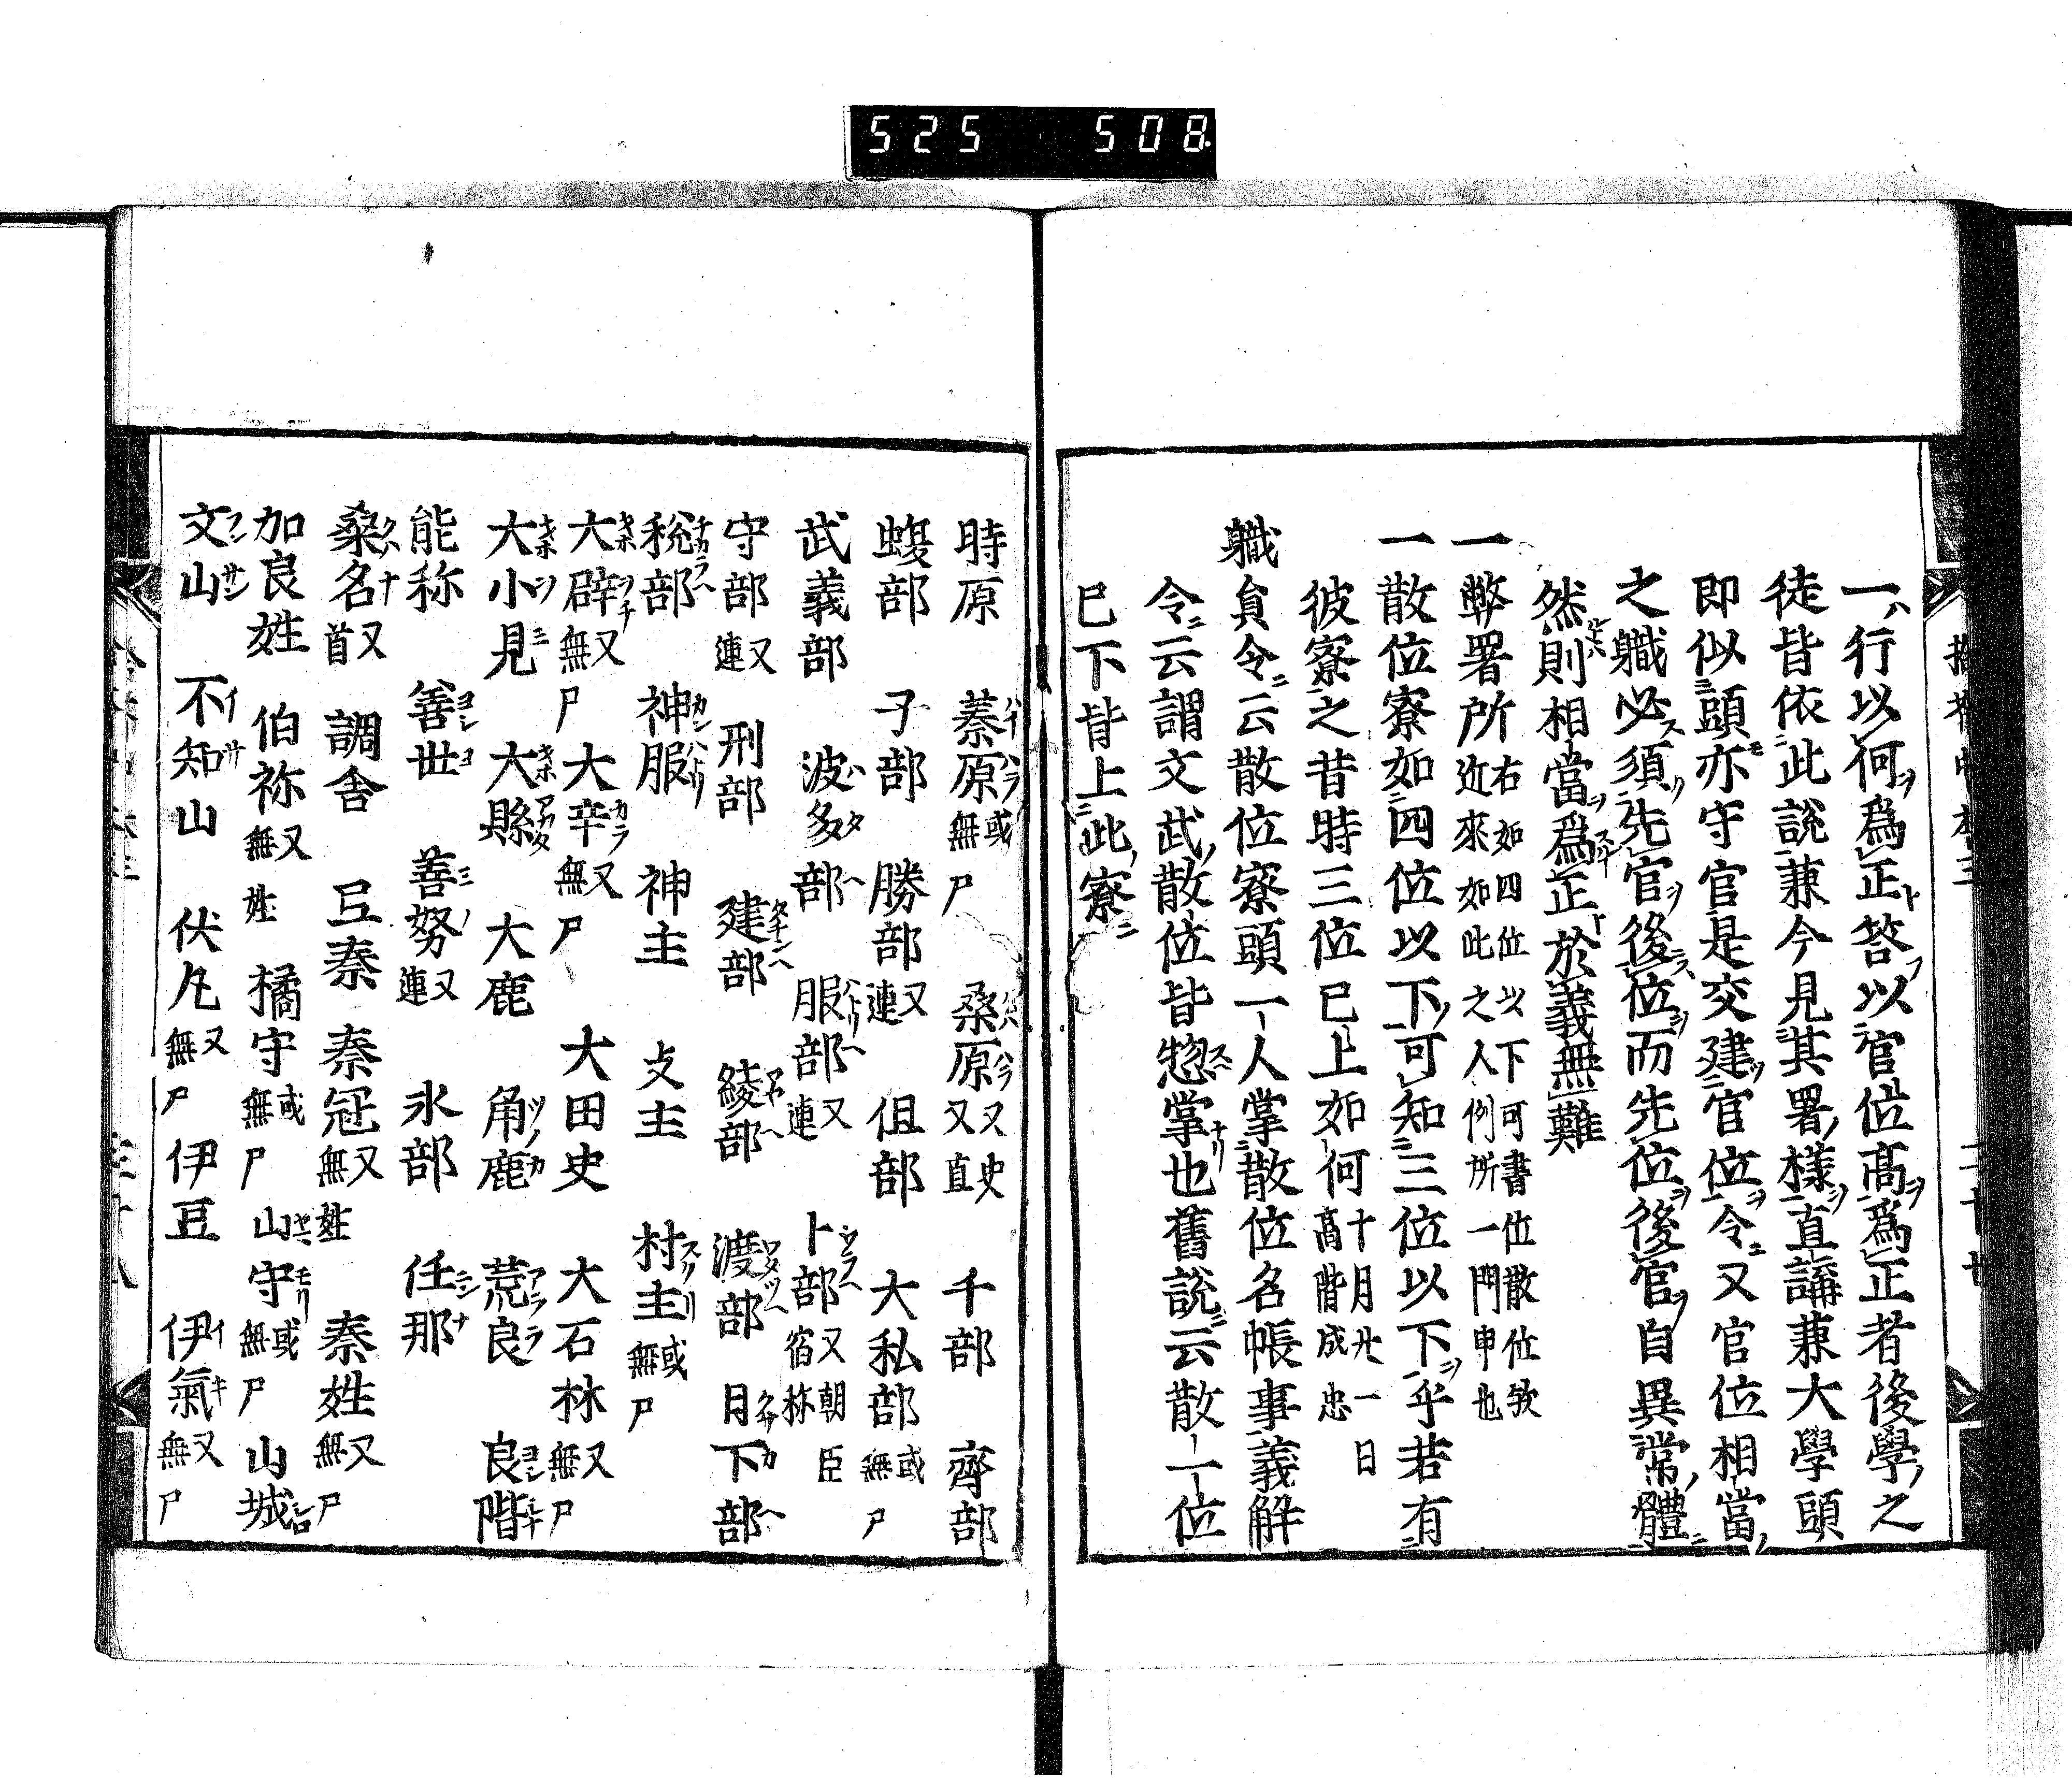 525 508
一行以何爲正答以官位高爲正者後學之
徒皆依此說兼今見其署樣直講兼大學頭
即似頭亦守官是交建官位令又官位相當
之職必須先官後位而先位後官自異常體
然則相當爲正於義無難
一弊署所右如四位以下可書位散位欤
近來如此之人例所一門申也
一散位寮如四位以下可知三位以下乎若有
彼寮之昔時三位已上如何十月廿一日
高階成忠
職員令云散位寮頭一人掌散位名帳事義解
令云謂文武散位皆惣掌也舊說云散一位
已下皆上此寮
時原 蓁原或無尸 桑原又史又直 千部 齊部
蝮部 子部 勝部又連 伹部 大私部或無尸
武義部 波多部 服部又連 卜部又朝臣宿祢
守部又連 刑部 建部 綾部 渡部 日下部
税部 神服 神主 村主或無尸
大辟又無尸 大辛又無尸 大田史 大石林又無尸
大小見 大縣 大鹿 角鹿 荒良 良階
能称 善世 善努又連 氷部 任那
桑名又首 調舎 秦 秦冠又無姓 秦姓又無尸
加良姓 伯祢又無姓 橘守或無尸 山守或無尸 山城
文山 不知山 伏凡又無尸 伊豆 伊氣又無尸